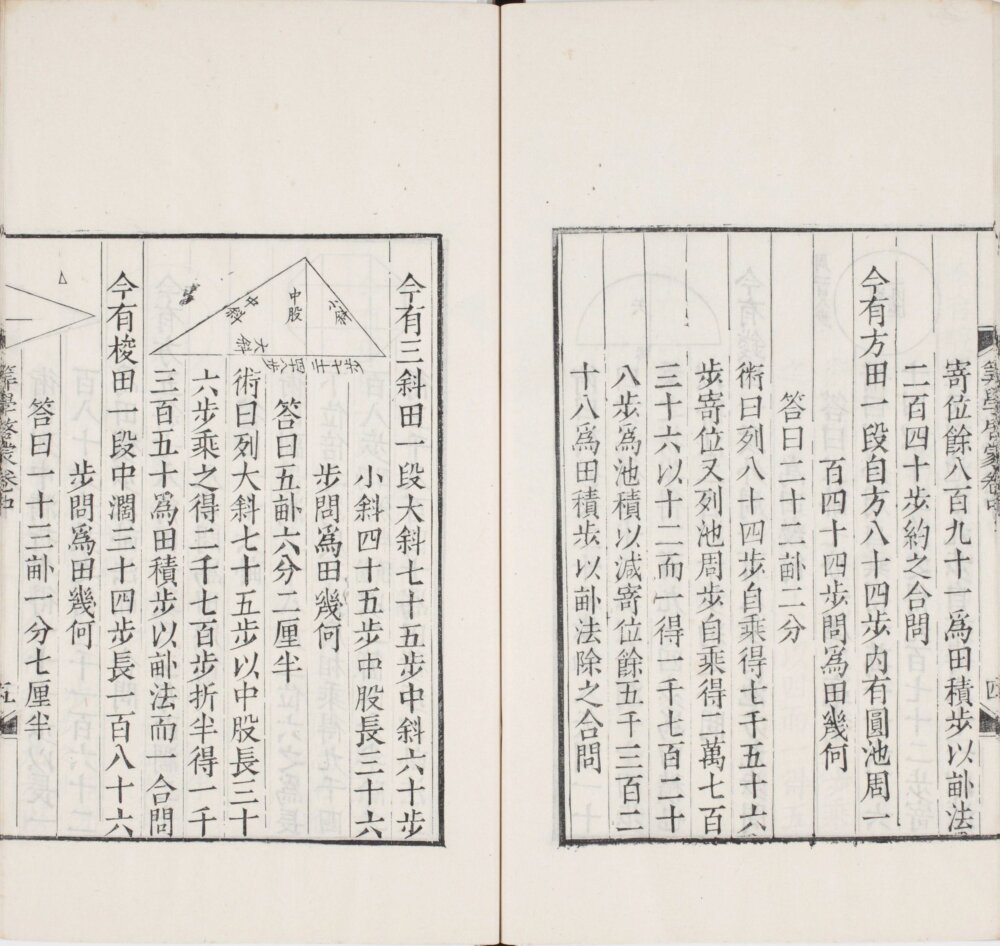 算學啓蒙卷中
四
寄位餘八百九十一爲田積步以畝法
二百四十步約之合問
今有方田一段自方八十四步内有圓池周一
百四十四步問爲田幾何
答曰二十二畝二分
術曰列八十四步自乘得七千五十六
步寄位又列池周步自乘得二萬七百
三十六以十二而一得一千七百二十
八步爲池積以減寄位餘五千三百二
十八爲田積步以畝法除之合問
今有三斜田一段大斜七十五步中斜六十步
小斜四十五步中股長三十六
步問爲田幾何
小斜
中股
中斜
大斜
答曰五畝六分二厘半
術曰列大斜七十五步以中股長三十
六步乘之得二千七百步折半得一千
三百五十爲田積步以畝法而一合問
今有梭田一段中濶三十四步長一百八十六
步問爲田幾何
答曰一十三畝一分七厘半
算學啓蒙卷中
五